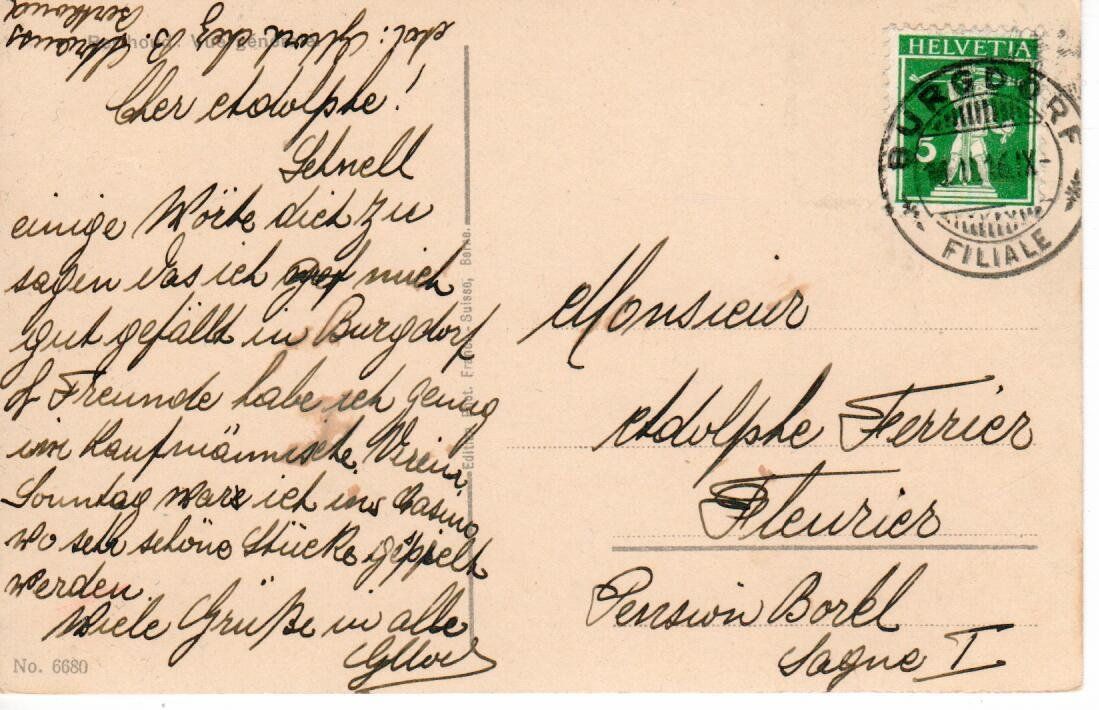 Berthoud
chez B. Strauss
Berthoud. Vue générale.
Cher Adolphe!
Schnell
einige Wörte dich zu
sagen das ich mich
gut gefällt in Burgdorf
Freunde habe ich genug
im Kaufmännische Verein
Sonntag ware ich ins Casino
wo sehr schöne Stücke geppielt
werden.
Viele Grüße in alle
No. 6680
Edition Phot. Franco-Suisse, Berne.
HELVETIA
5
BURGDORF
FILIALE
Monsieur
Adolphe Ferrier
Fleurier
Pension Borel
Sagne I